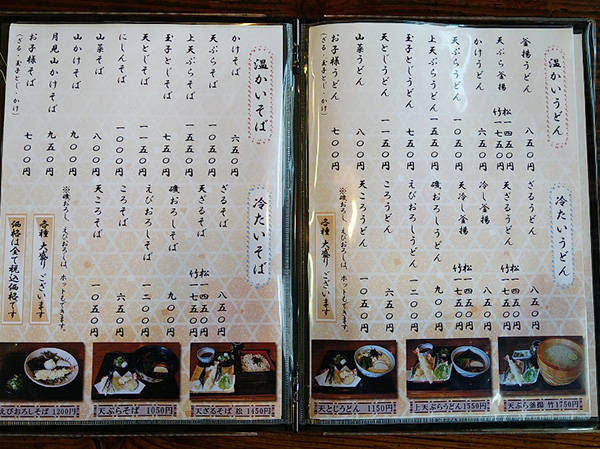 温かいうどん
釜揚うどん 八五〇円
天ぷら釜揚 松一四五〇円
竹一七五〇円
かけうどん 六五〇円
天ぷらうどん 一〇五〇円
上天ぷらうどん 一五五〇円
玉子とじうどん 八五〇円
天とじうどん 一一五〇円
山菜うどん 八〇〇円
お子様うどん 七〇〇円
(ざる・玉子とじ・かけ)
冷たいうどん
ざるうどん 八五〇円
天ざるうどん 松一四五〇円
竹一七五〇円
冷し釜揚 八五〇円
天冷し釜揚 一四五〇円
磯おろしうどん 九〇〇円
えびおろしうどん 一二〇〇円
ころうどん 六五〇円
天ころうどん 一〇五〇円
※磯おろし、えびおろしは、ホットもできます。
各種 大盛り ございます
天とじうどん 1150円
上天ぷらうどん 1550円
天ぷら釜揚 竹1750円
温かいそば
かけそば 六五〇円
天ぷらそば 一〇五〇円
上天ぷらそば 一五五〇円
玉子とじそば 八五〇円
天とじそば 一一五〇円
にしんそば 一〇〇〇円
山菜そば 八〇〇円
山かけそば 九〇〇円
月見山かけそば 九五〇円
お子様そば 七〇〇円
(ざる・玉子とじ・かけ)
冷たいそば
ざるそば 八五〇円
天ざるそば 松一四五〇円
竹一七五〇円
磯おろしそば 九〇〇円
えびおろしそば 一二〇〇円
ころそば 六五〇円
天ころそば 一〇五〇円
※磯おろし、えびおろしは、ホットもできます。
各種 大盛り ございます
価格は全て税込価格です
えびおろしそば 1200円
天ぷらそば 1050円
天ざるそば 松 1450円